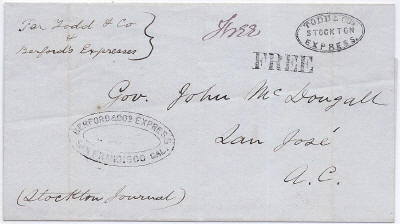 Per Todd & Co
&
Berford's Expresses
Free
TODD & CO'S
STOCKTON
EXPRESS.
FREE
Gov. John McDougall
San José
A.C.
BERFORD & CO'S EXPRESS
SAN FRANCISCO CAL.
(Stockton Journal)